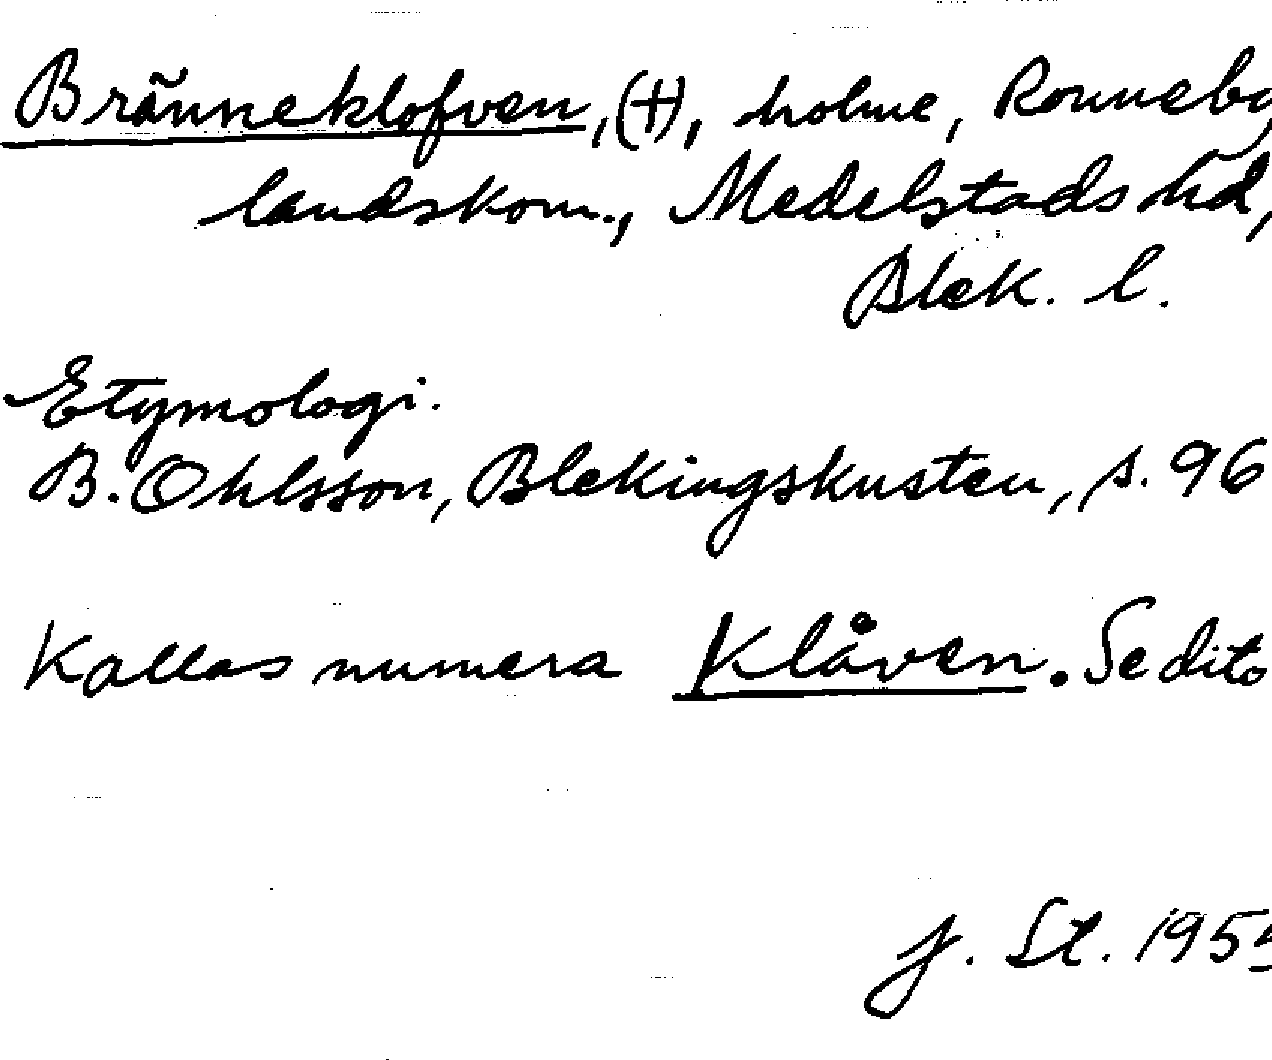 Bränneklofven, (†), holme, Ronneby
landskom., Medelstads hd,
Blek. l.
Etymologi.
B. Ohlsson, Blekingskusten, s. 96
Kallas numera Klåven. Se dito
J. St. 1955